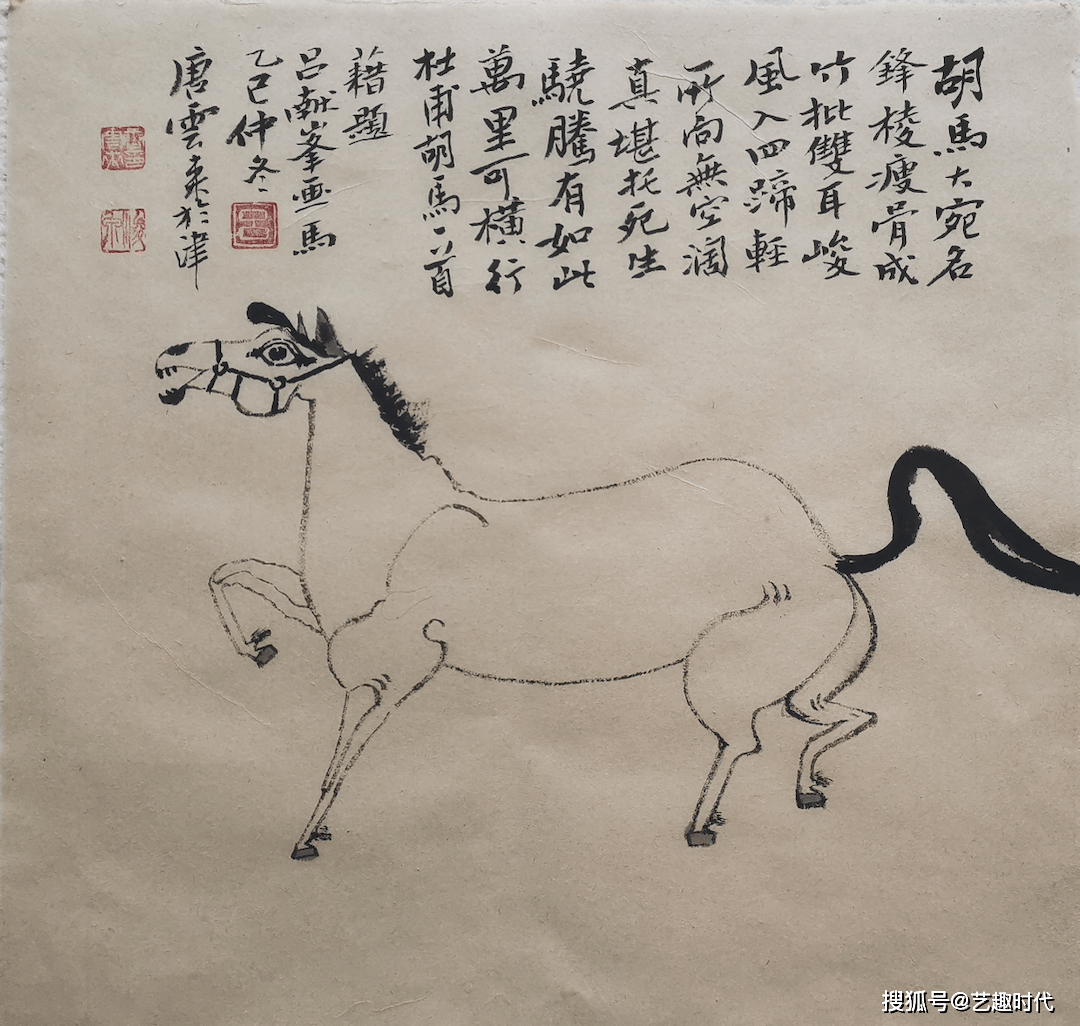 胡馬大宛名
鋒棱瘦骨成
竹批雙耳峻
風入四蹄輕
所向無空闊
真堪托死生
驍騰有如此
萬里可橫行
杜甫胡馬一首
藉題
呂献峯画馬
乙巳仲冬
唐雲来於津
搜狐号@艺趣时代